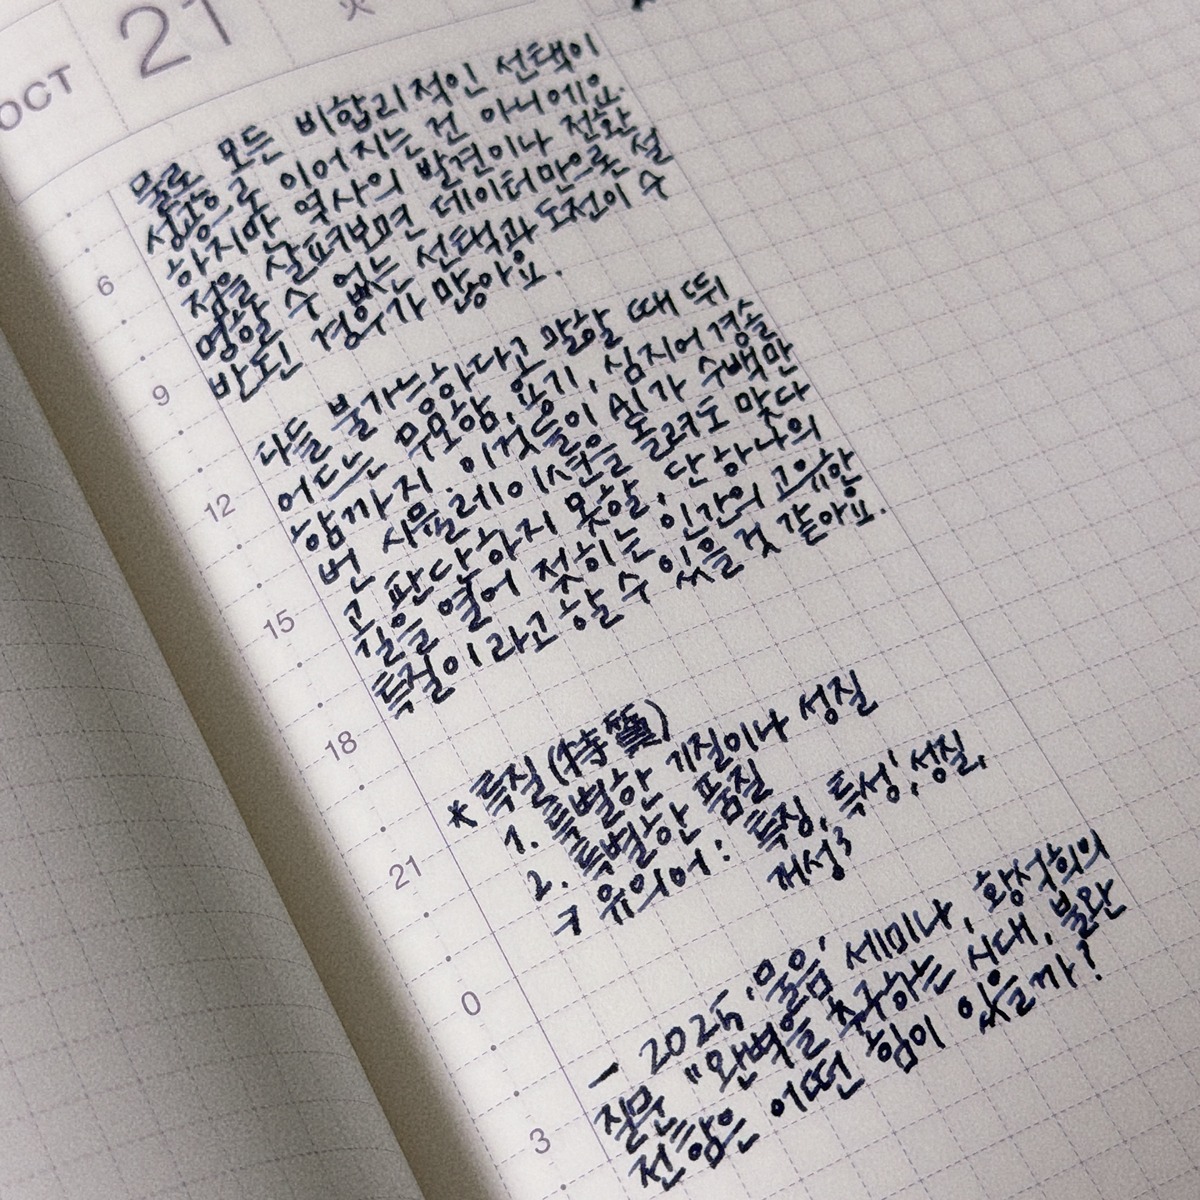 OCT 21 火
물론 모든 비합리적인 선택이
성공으로 이어지는 건 아니에요.
하지만 역사의 발견이나 전환
점을 살펴보면 데이터만으론 설
명할 수 없는 선택과 도전이 수
반된 경우가 많아요.
다들 불가능하다고 말할 때 뛰
어드는 무모함, 용기, 심지어 경솔
함까지. 이것들이 AI가 수백만
번 시뮬레이션을 돌려도 맞다
고 판단하지 못할, 단 하나의
길을 열어 젖히는 인간의 고유한
특질이라고 할 수 있을 것 같아요.
* 특질(特質)
1. 특별한 기질이나 성질
2. 특별한 품질
→ 유의어: 특징, 특성, 성질,
개성
- 2025, '물음' 세미나, 황석희의
질문 "완벽을 추구하는 시대, 불완
전함은 어떤 힘이 있을까?
6
9
12
15
18
21
0
3